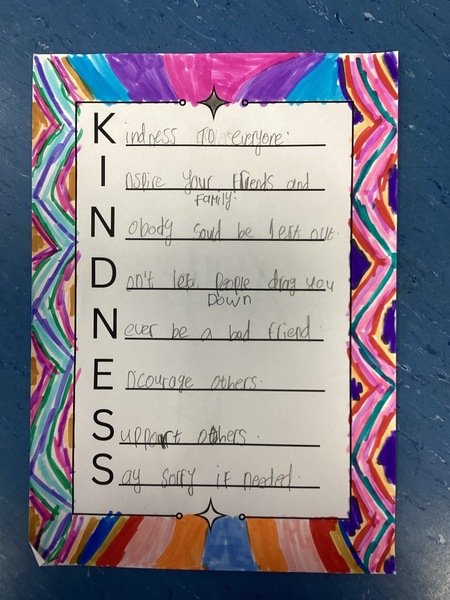 Kindness TO everyone.
Inspire your friends and
Family.
Nobody soud be left out.
Don't let people drag you
Down
Never be a bad friend.
Encourage others.
Support others.
Say sorry if needed.